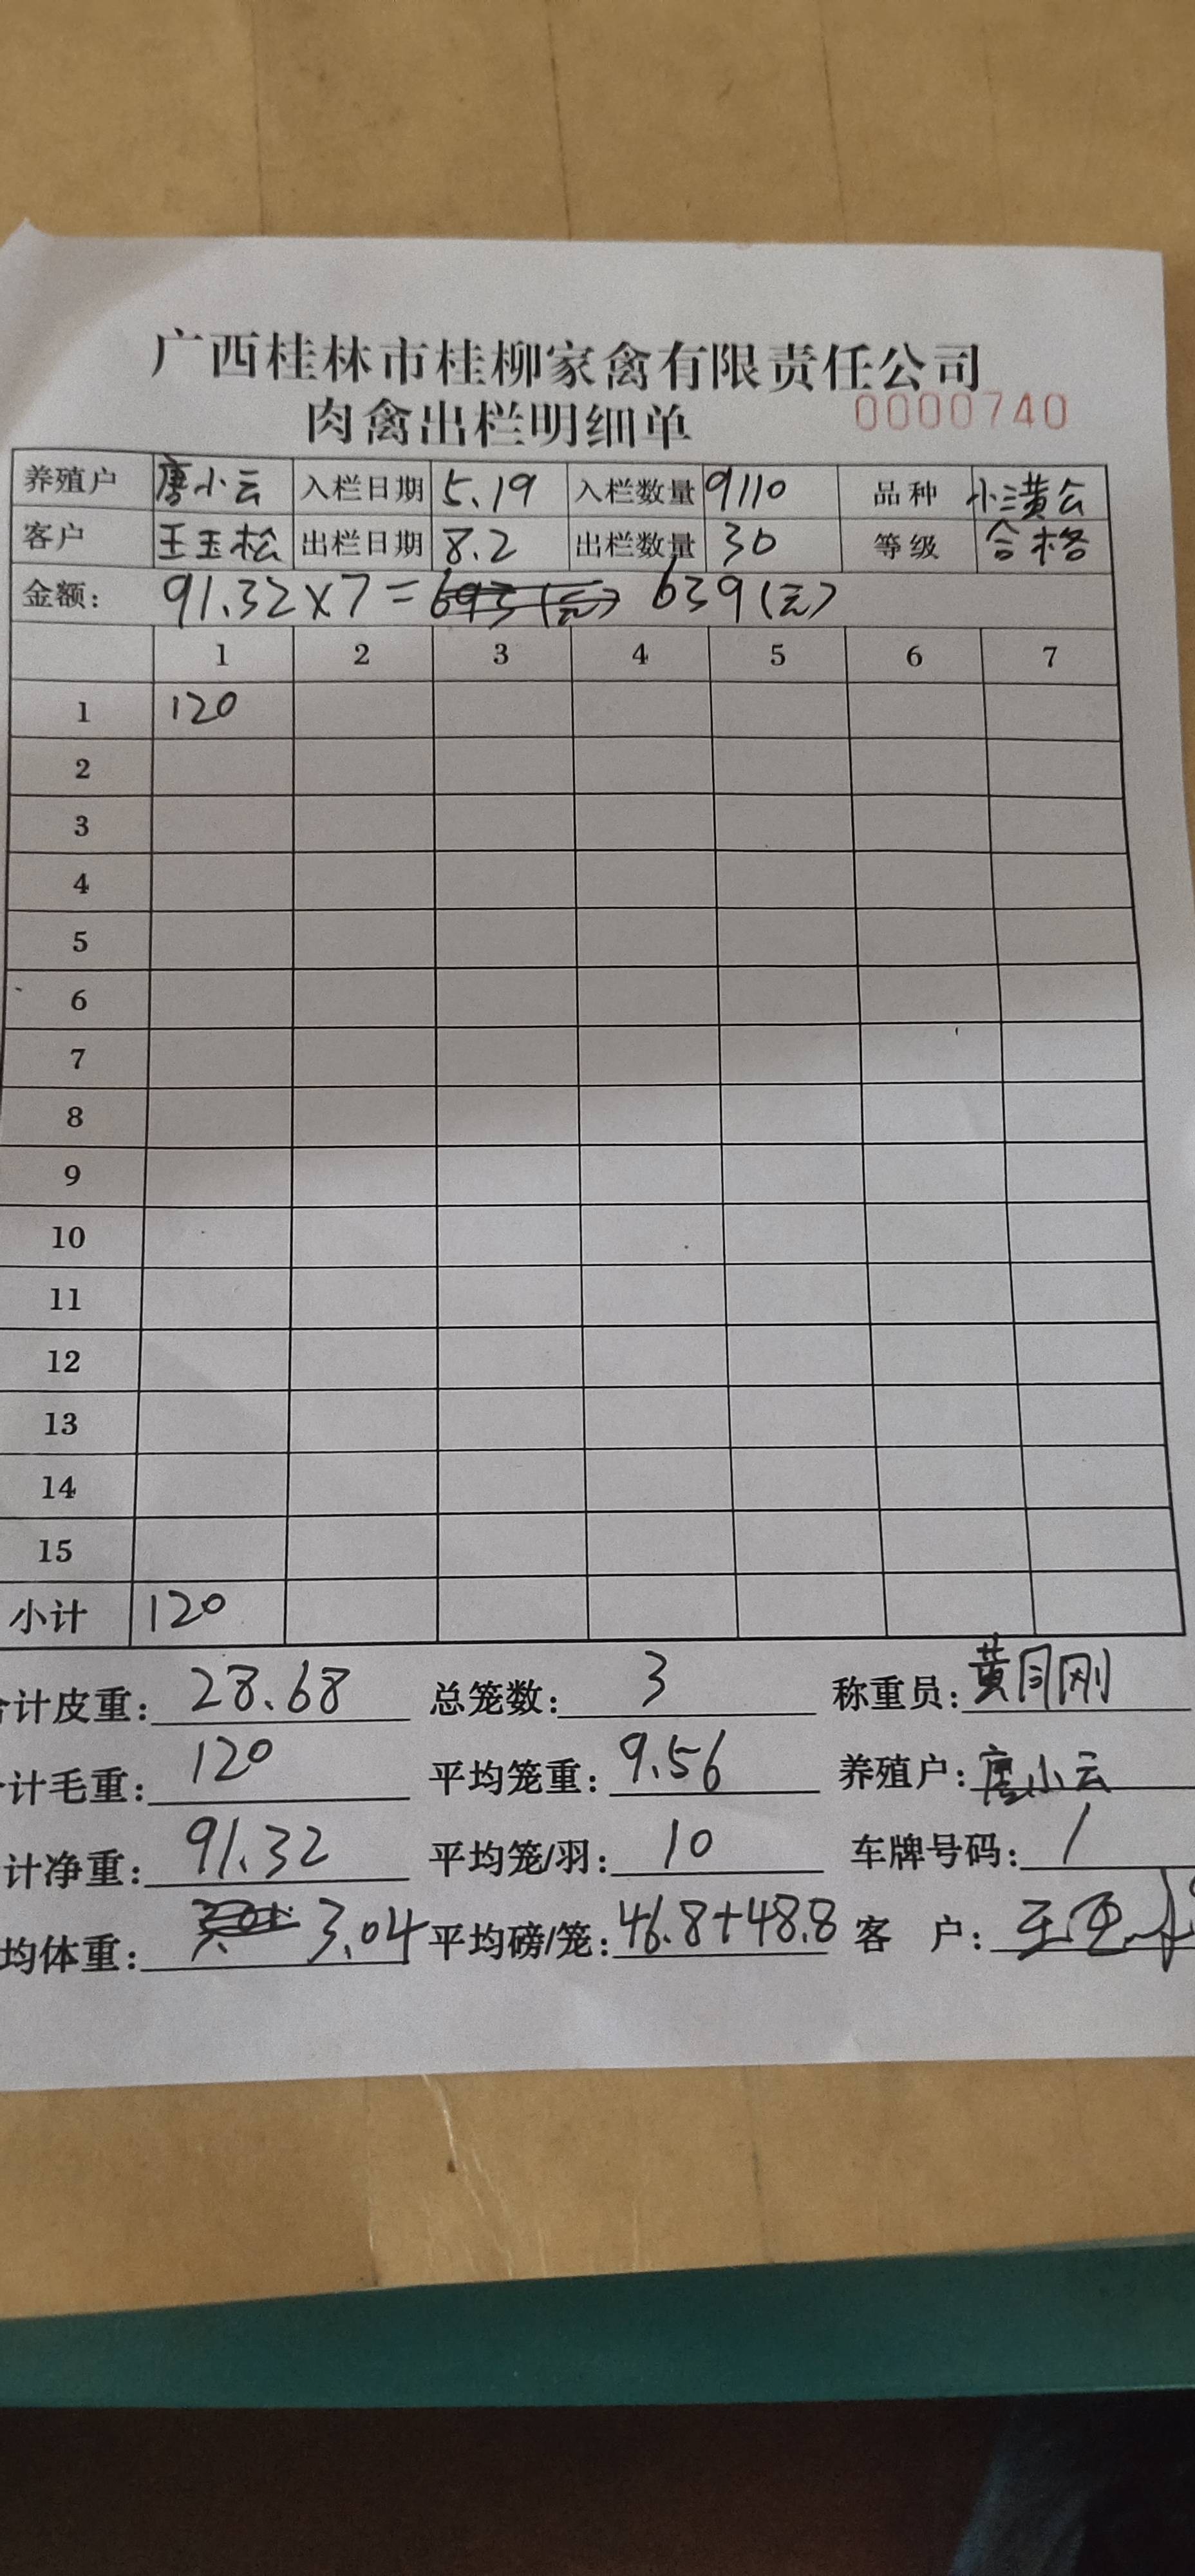 广西桂林市桂柳家禽有限责任公司
肉禽出栏明细单 0000740
养殖户 唐小云 入栏日期 5.19 入栏数量 9110 品种 小三黄公
客户 王玉松 出栏日期 8.2 出栏数量 30 等级 合格
金额: 91.32×7= 639(元)
1 2 3 4 5 6 7
1 120
2
3
4
5
6
7
8
9
10
11
12
13
14
15
小计 120
计皮重: 28.68 总笼数: 3 称重员: 黄月刚
计毛重: 120 平均笼重: 9.56 养殖户: 唐小云
计净重: 91.32 平均笼/羽: 10 车牌号码: /
均体重: 3.04 平均磅/笼: 46.8+48.8 客 户: 王玉